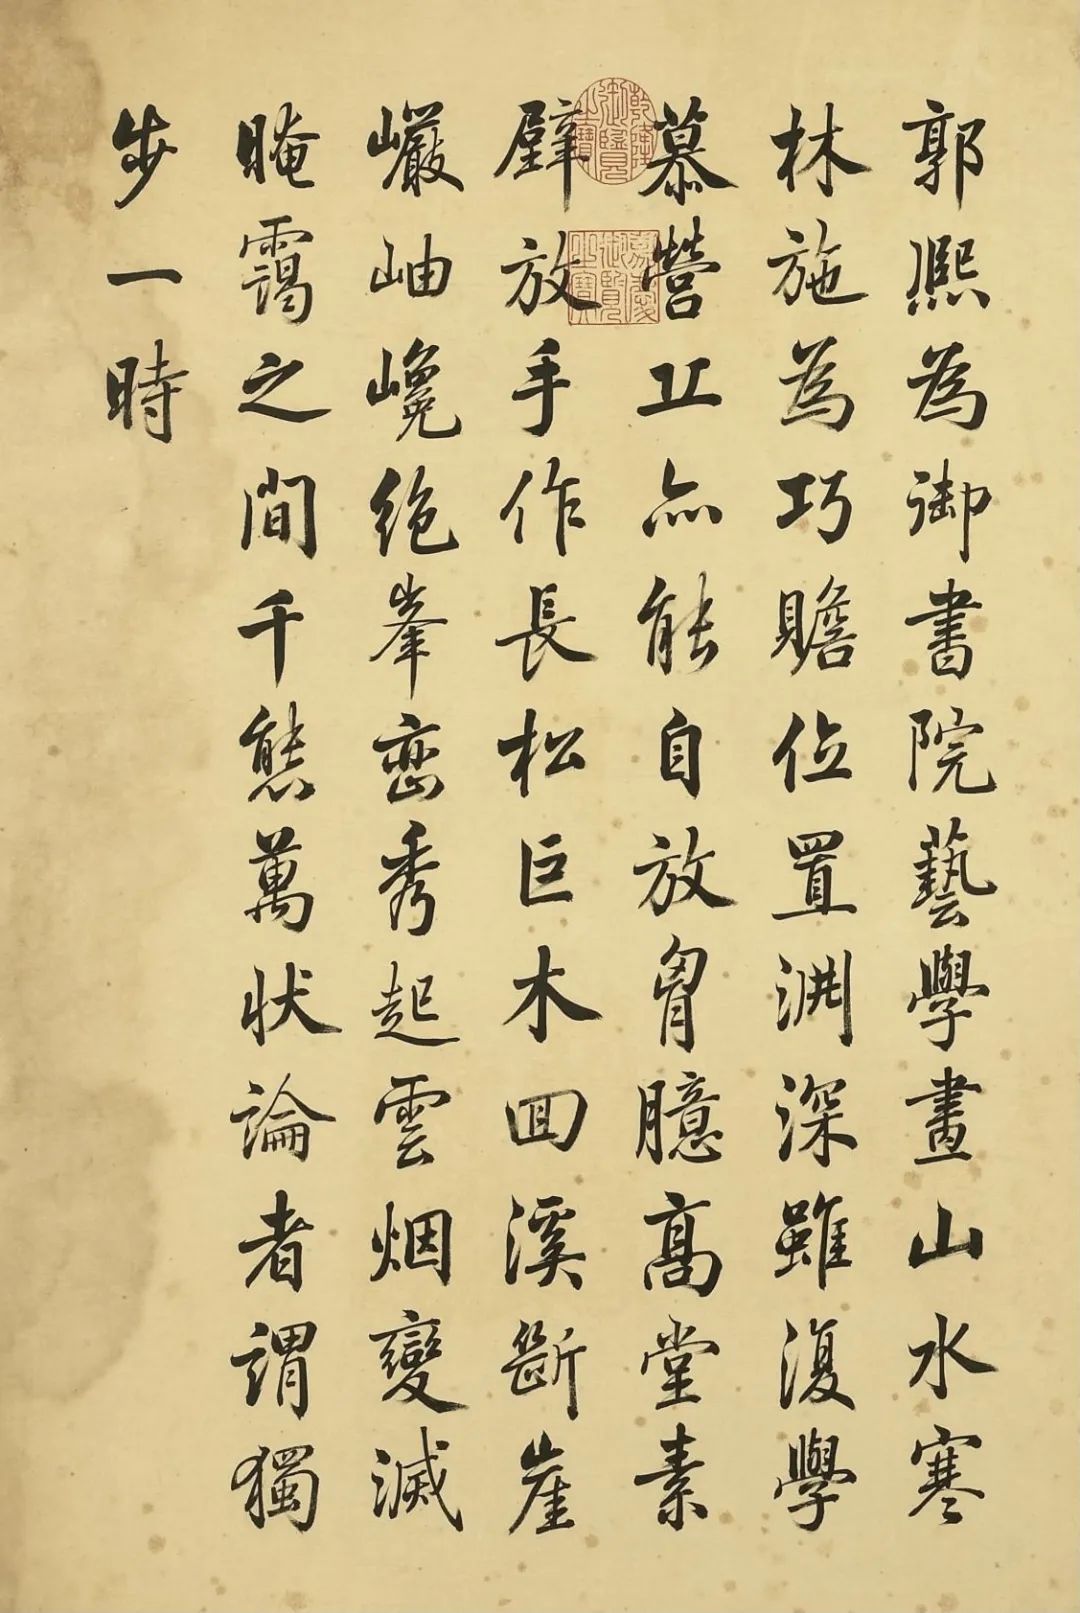 郭熙為御書院藝學畫山水寒
林施為巧贍位置淵深雖復學
慕營丘亦能自放胷臆高堂素
壁放手作長松巨木囬溪斷崖
巖岫巉絶峯巒秀起雲烟變滅
晻靄之間千態萬狀論者謂獨
步一時
乾隆御覽之寶
嘉慶御覽之寶